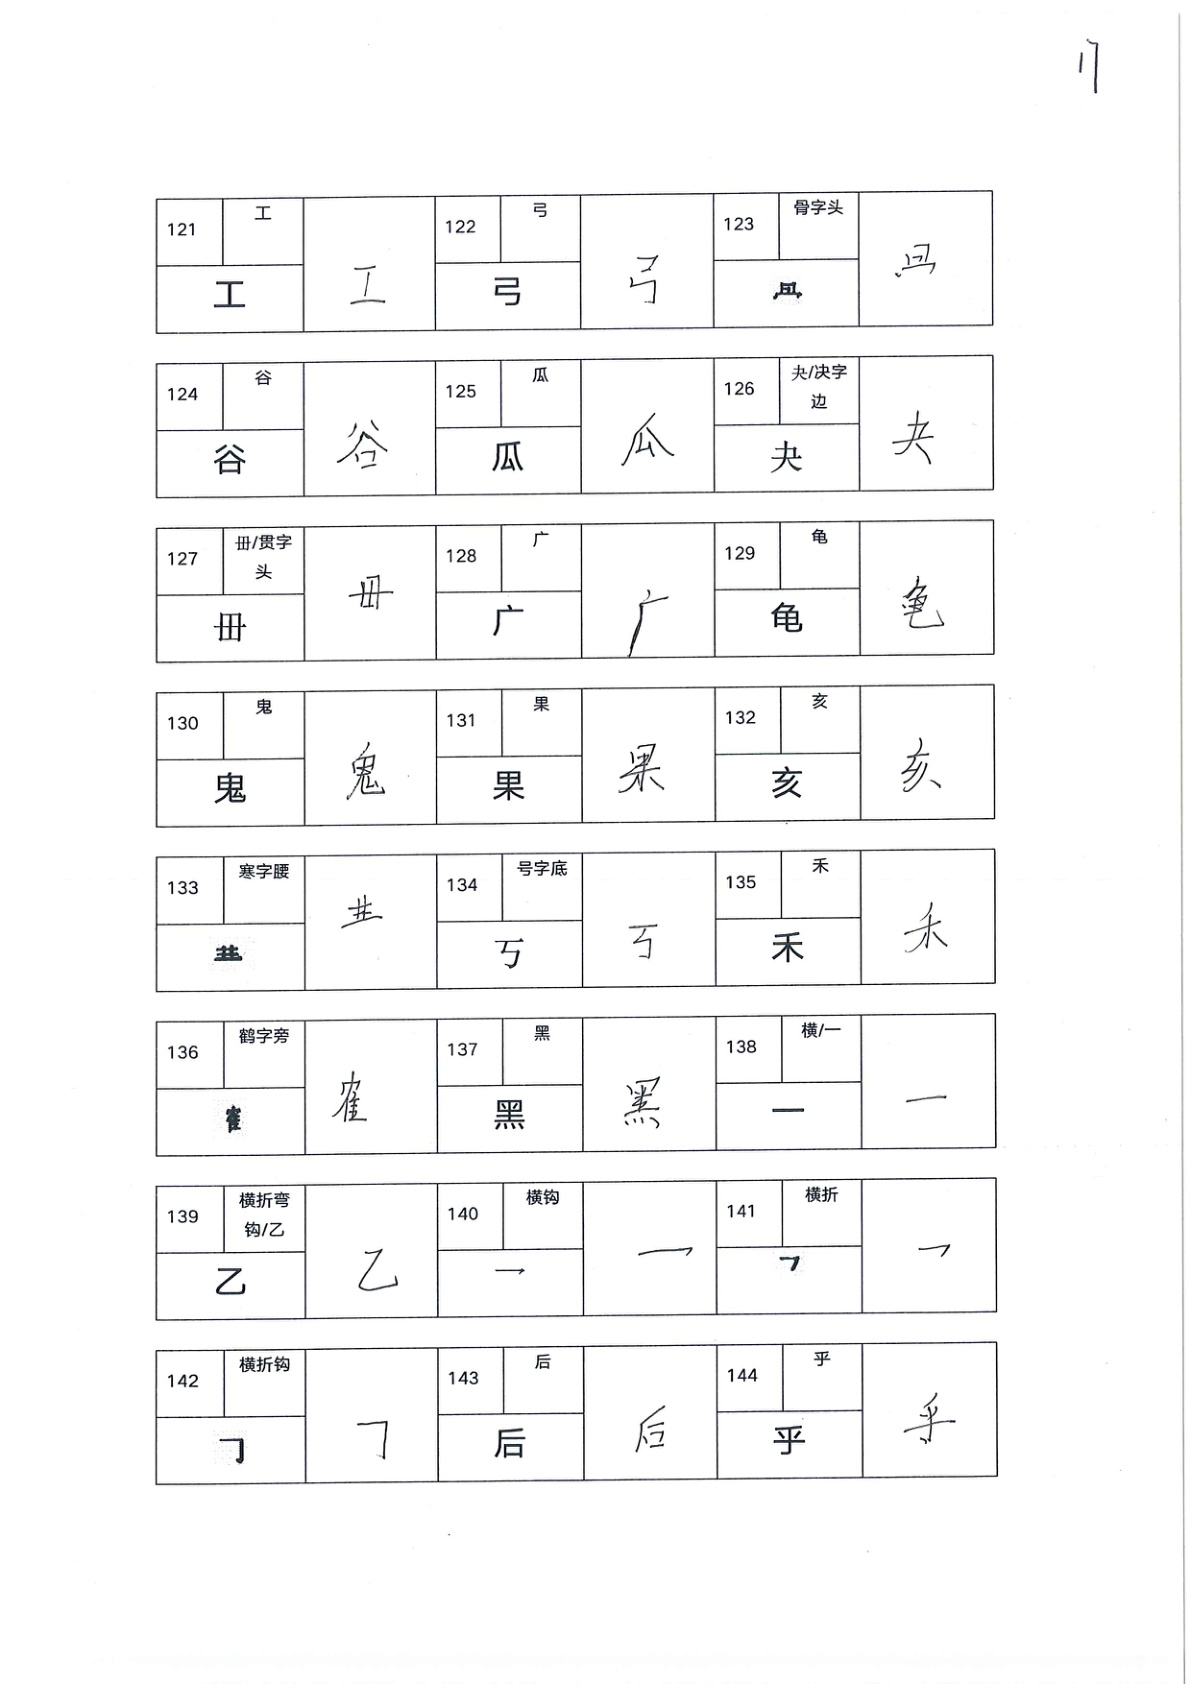 17
121 工 工 122 弓 弓 123 骨字头
工 弓
124 谷 谷 125 瓜 瓜 126 夬/决字
边 夬
谷 瓜 夬
127 毌/贯字
头 毌 128 广 广 129 龟 龟
毌 广 龟
130 鬼 鬼 131 果 果 132 亥 亥
鬼 果 亥
133 寒字腰 134 号字底 丂 135 禾 禾
丂 禾
136 鹤字旁 隺 137 黑 黑 138 横/一 一
隺 黑 一
139 横折弯
钩/乙 乙 140 横钩 乛 141 横折 ㇕
乙 乛 ㇕
142 横折钩 ㇆ 143 后 后 144 乎 乎
㇆ 后 乎